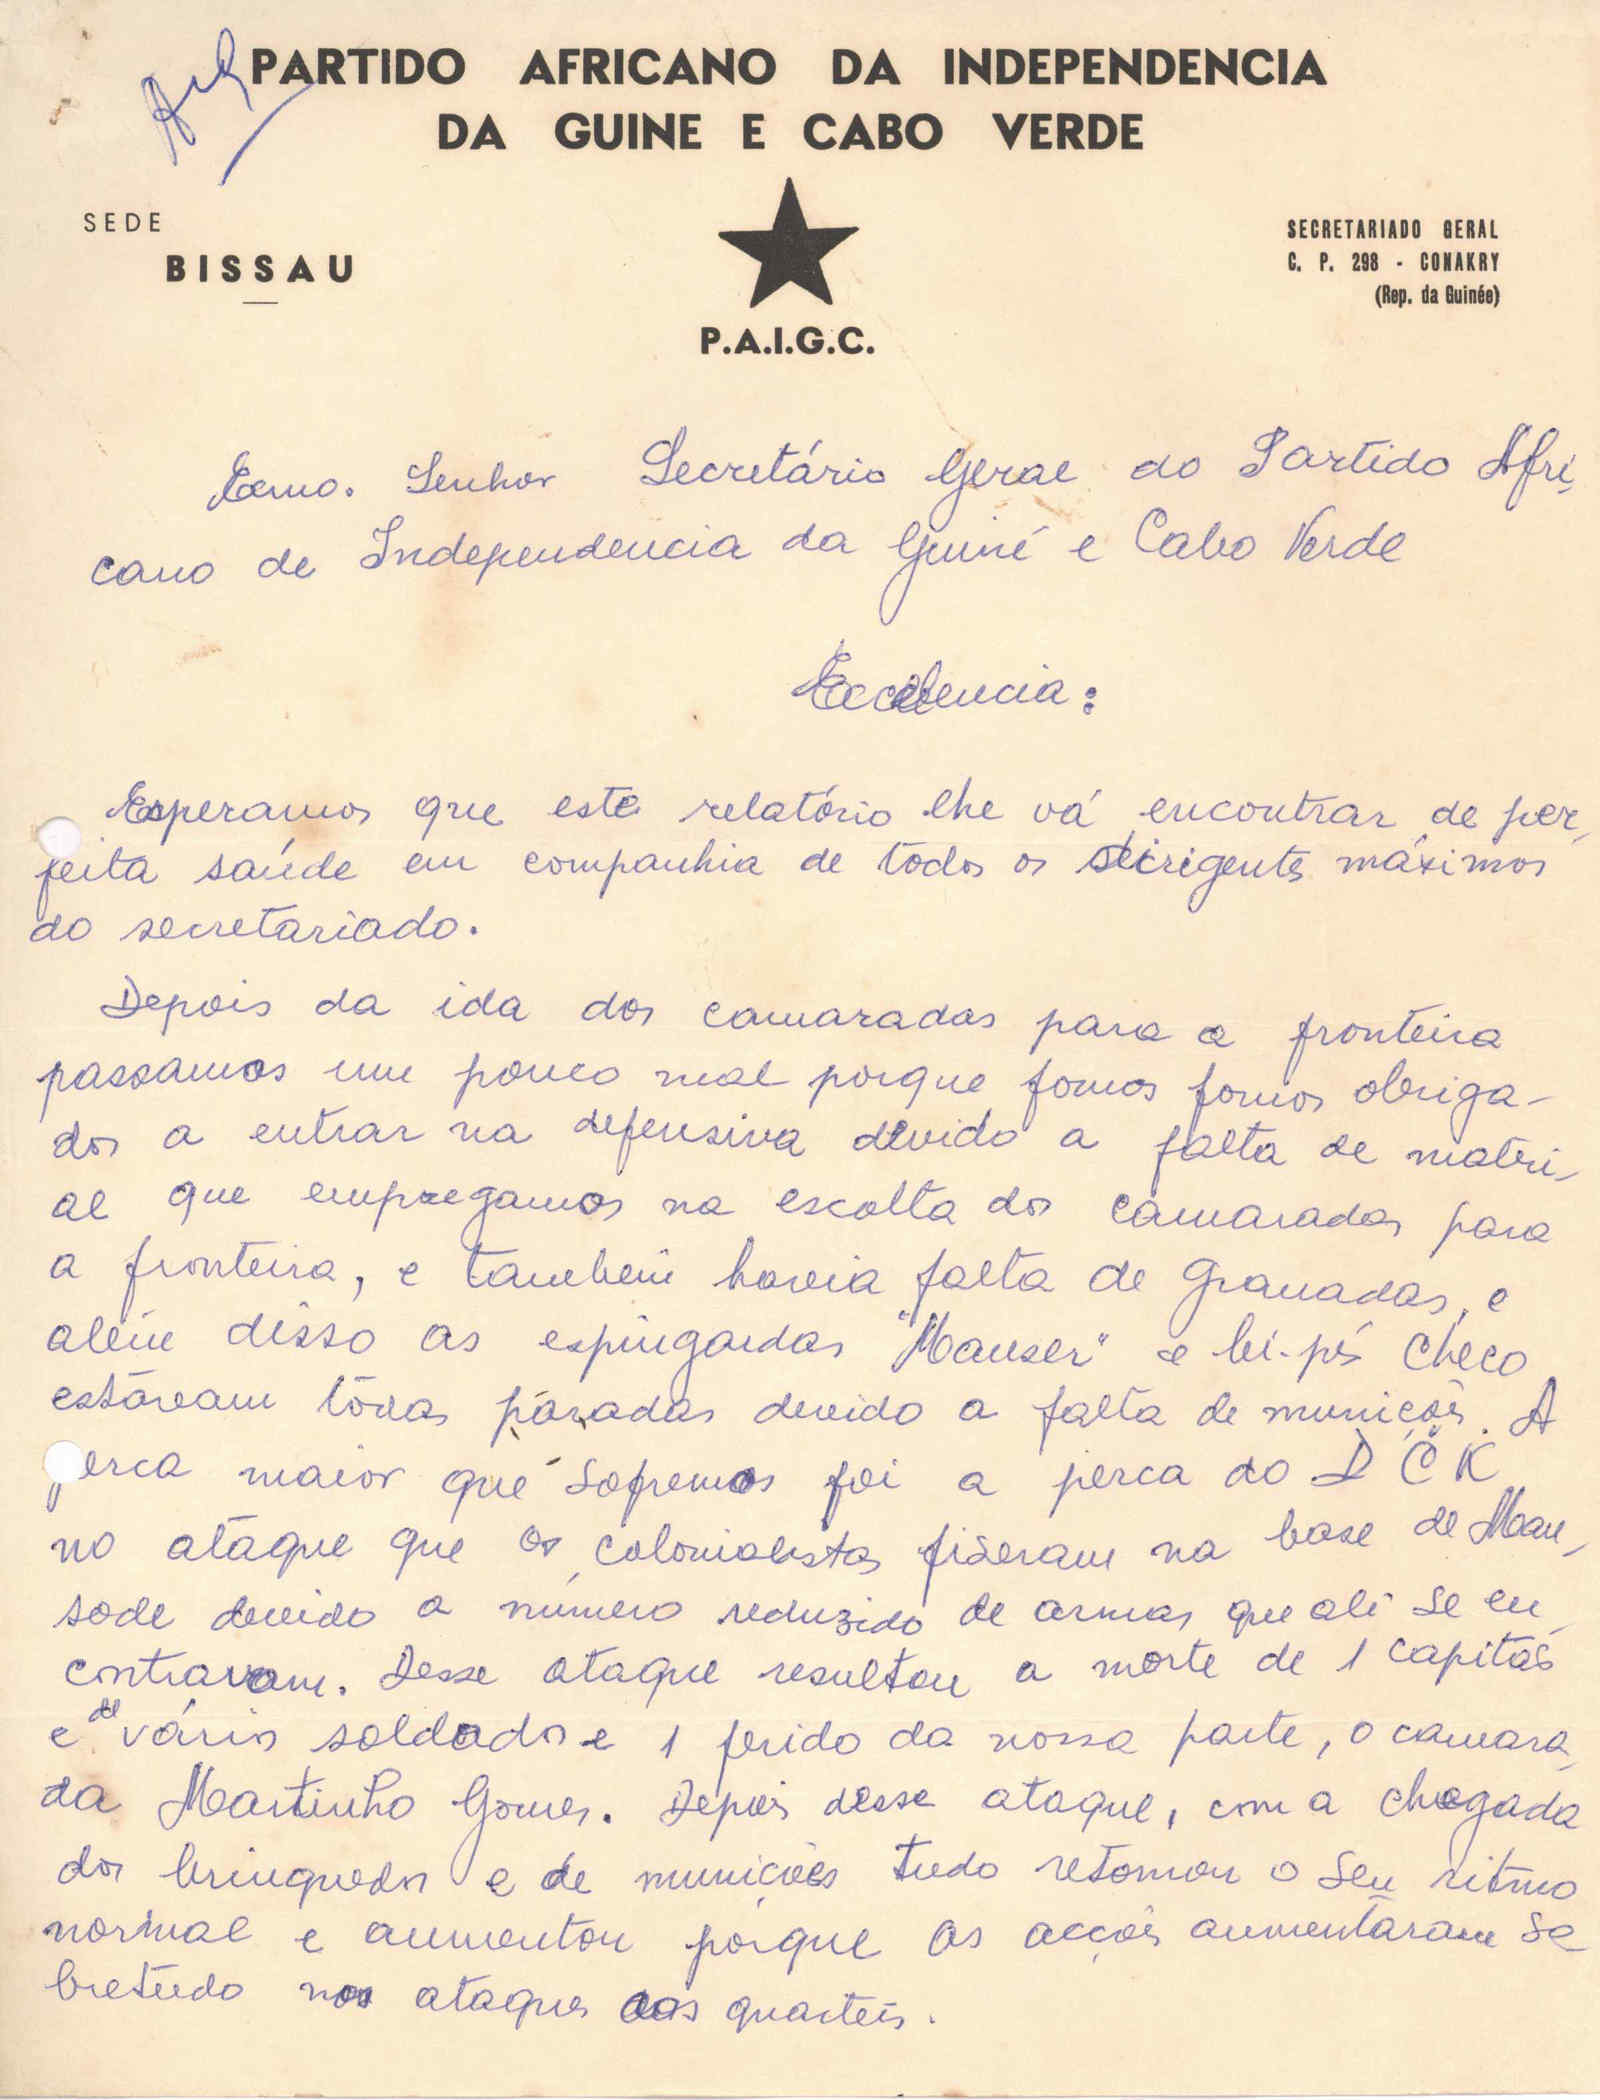 PARTIDO AFRICANO DA INDEPENDENCIA
DA GUINE E CABO VERDE
SEDE
BISSAU
P.A.I.G.C.
SECRETARIADO GERAL
C. P. 298 - CONAKRY
(Rep. da Guinée)
Exmo. Senhor Secretário Geral do Partido Afri,
cano de Independencia da Guiné e Cabo Verde
Excelencia:
Esperamos que este relatório lhe vá encontrar de per,
feita saúde em companhia de todos os dirigentes máximos
do secretariado.
Depois da ida dos camaradas para a fronteira
passamos um pouco mal porque fomos fomos obriga-
dos a entrar na defensiva devido a falta de matri,
al que empregamos na escolta dos camaradas para
a fronteira, e tambem havia falta de granadas, e
alem disso as espingardas "Mauser" e bi-pés checo
estavam tôdas paradas devido a falta de munições. A
perca maior que sofremos foi a perca do D C K
no ataque que os colonialistas fiseram na base de Man,
sode devido a número reduzido de armas que ali se en,
contravam. Desse ataque resultou a morte de 1 capitão
e de vários soldados e 1 ferido da nossa parte, o camara,
da Martinho Gomes. Depois desse ataque, com a chegada
dos brinquedos e de munições tudo retomou o seu ritmo
normal e aumentou porque as acções aumentaram so
bretudo nos ataques aos quarteis.